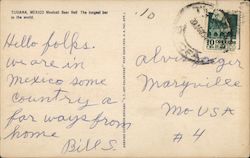 TIJUANA, MEXICO Mexicali Beer Hall The longest bar
in the world.
10
Hello folks.
we are in
Mexico some
country a
far ways from
home
Bill S
Maryville
Mo USA
#4